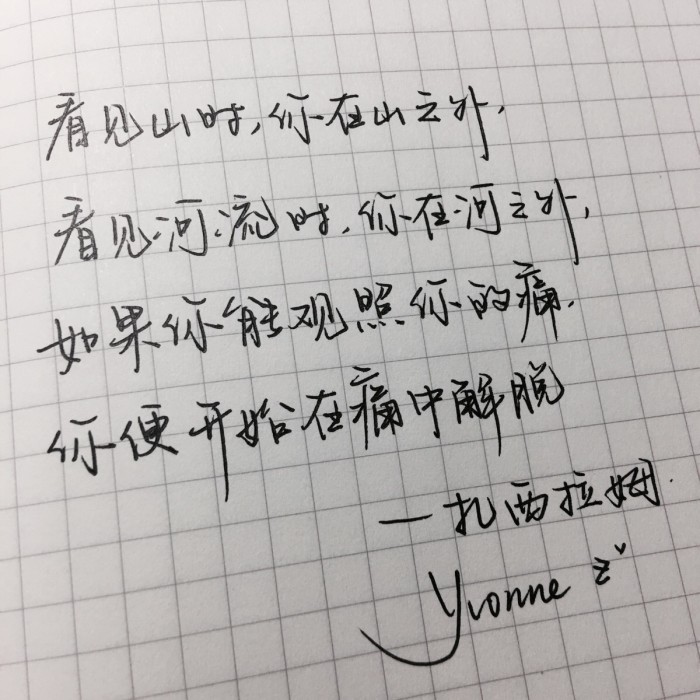 看见山时,你在山之外,
看见河流时,你在河之外,
如果你能观照你的痛,
你便开始在痛中解脱
—扎西拉姆
Yvonne z